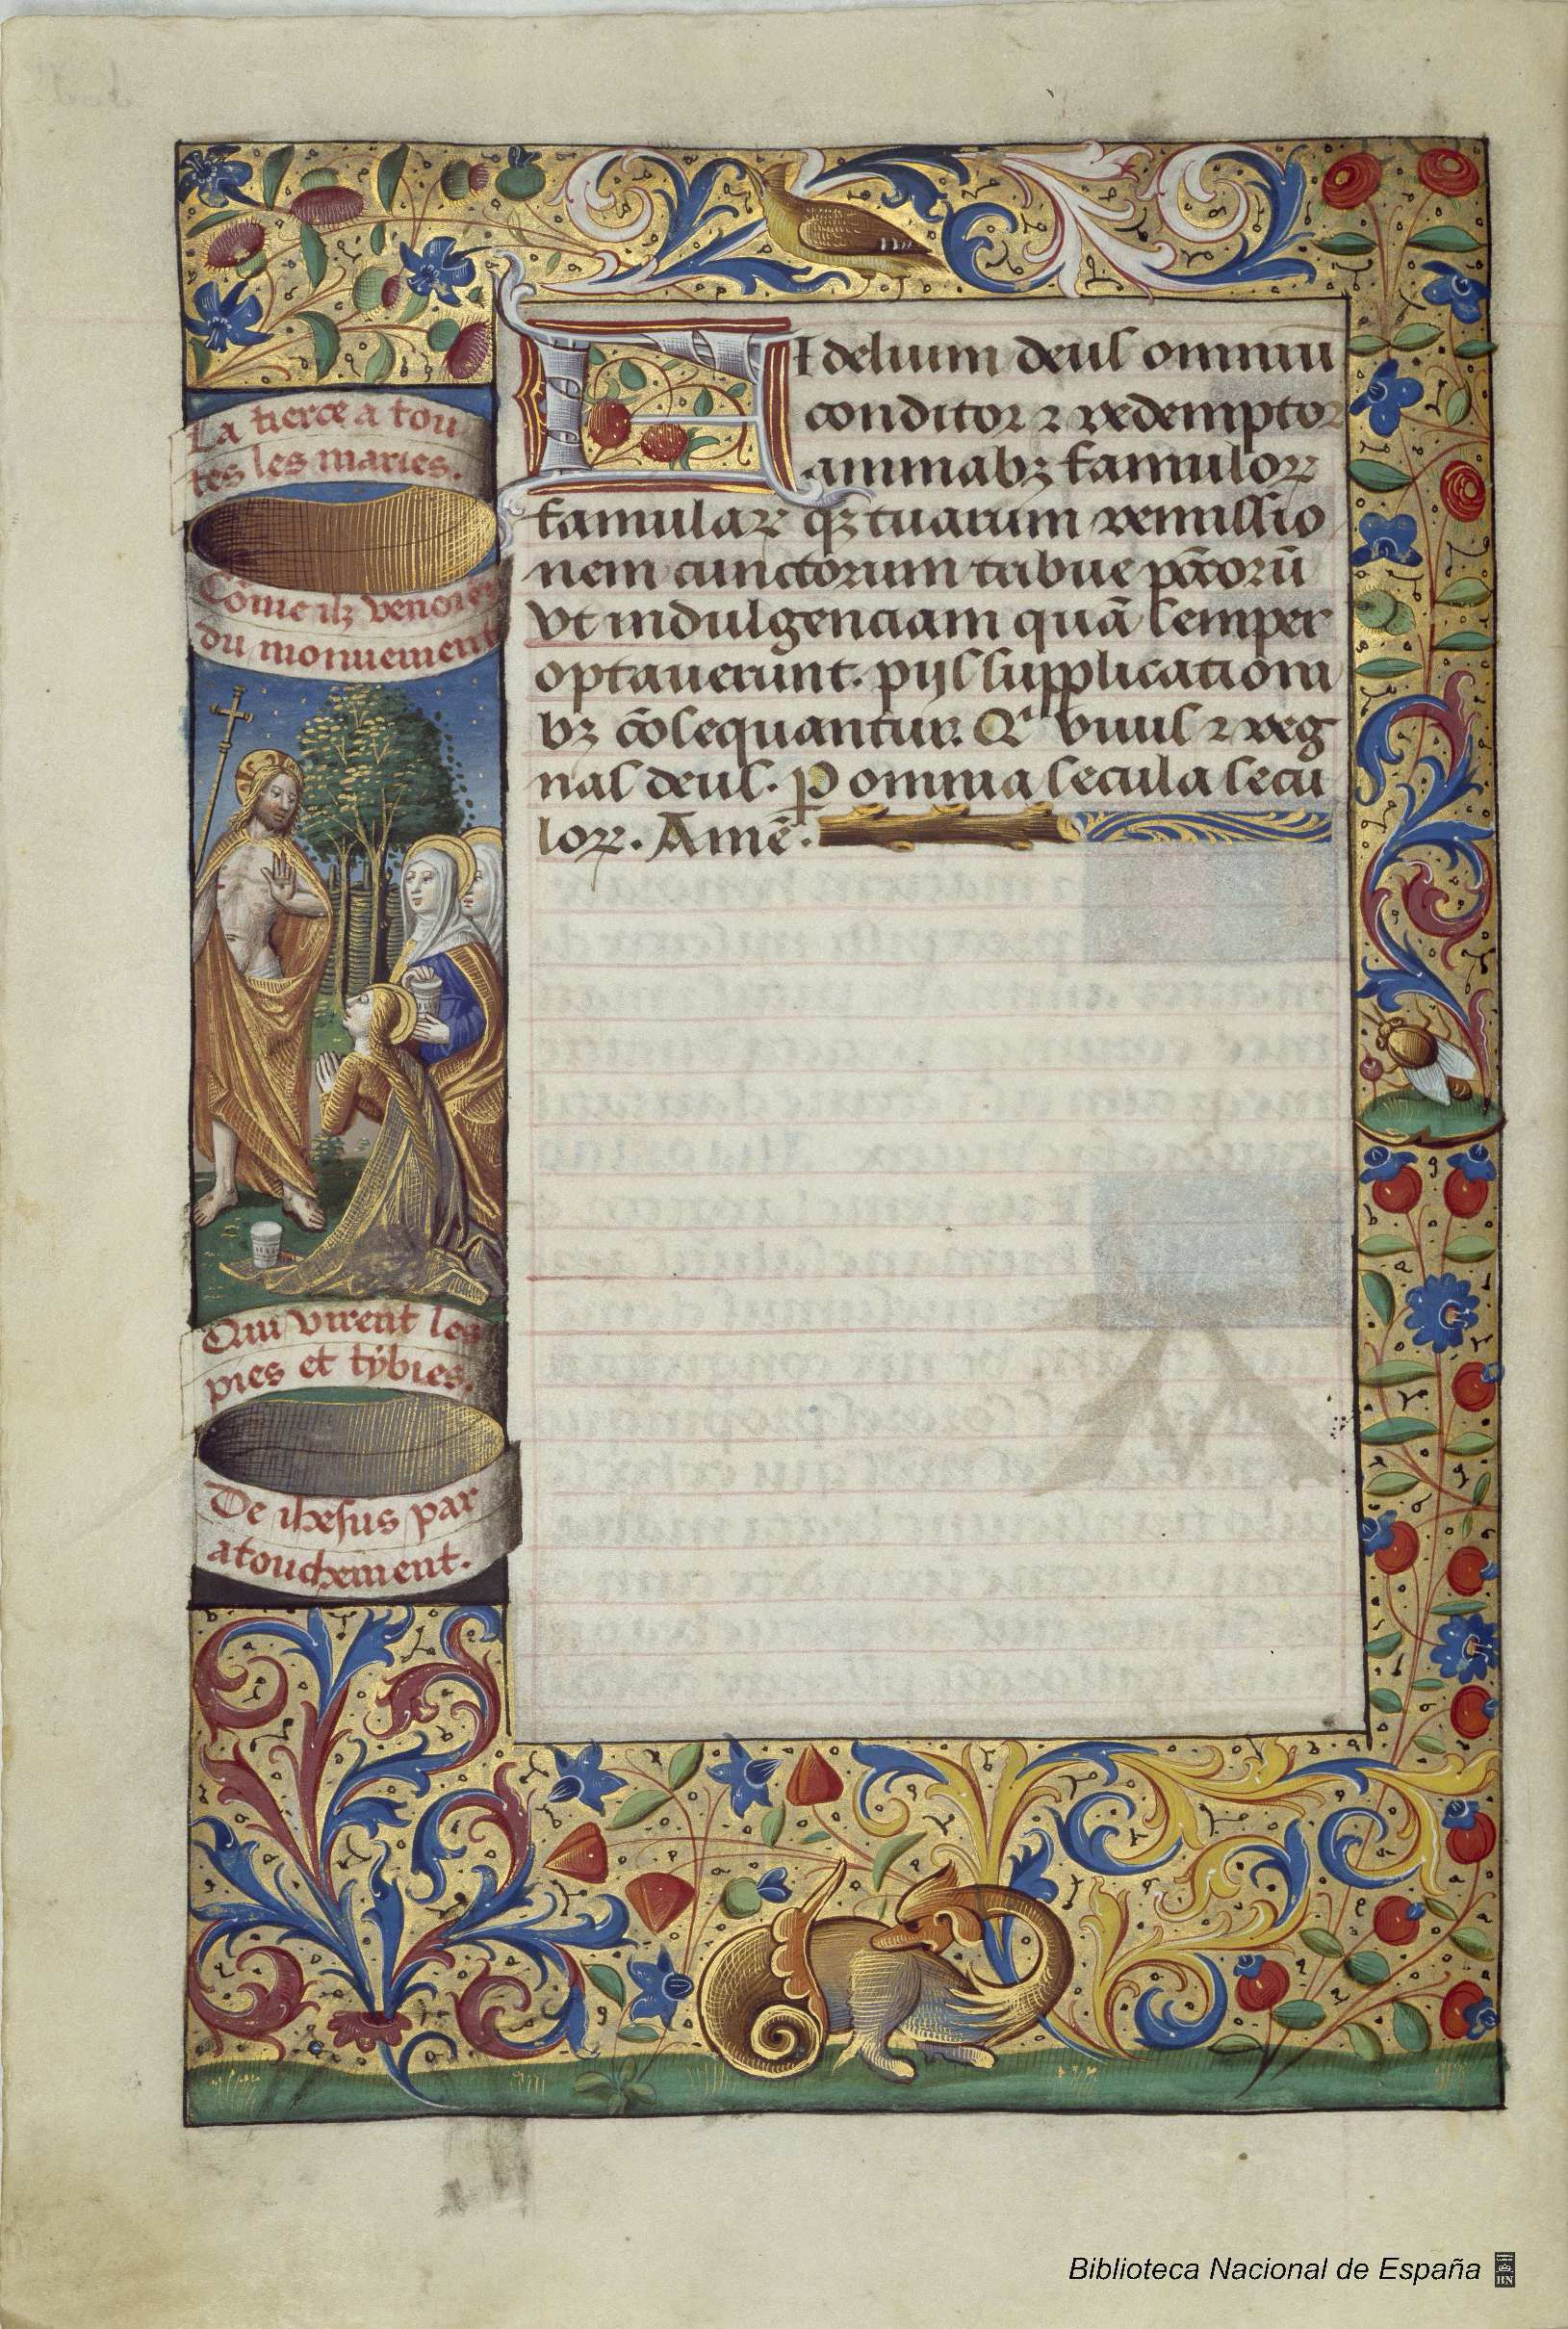 La tierce a tou
tes les maries.
Come ilz venoiēt
du monuement
Qui virent les
pies et tybies.
De ihesus par
atouchement.
FIdelium deus omniū
conditor ⁊ redemptor
animabꝫ famuloꝝ
famulaꝝ qꝫ tuarum remissio
nem cunctorum tribue pc̄corū
vt indulgenciam quā semper
optauerunt. pijs supplicationi
bꝫ cōsequantur. Qͥ viuis ⁊ reg
nas deus. P omnia secula secu
loꝝ. Amē.
Biblioteca Nacional de España
BN